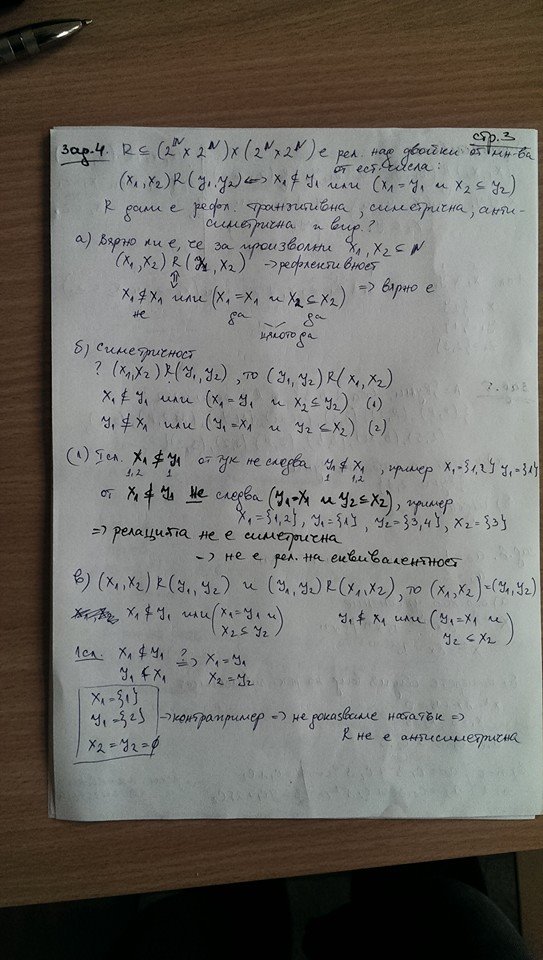 стр.3
Зад.4. R ⊆ (2^N × 2^N) × (2^N × 2^N) е рел. над двойки от мн-ва
от ест. числа:
(x₁, x₂) R (y₁, y₂) ⟺ x₁ ⊄ y₁ или (x₁ = y₁ и x₂ ⊆ y₂)
R дали е рефл. транзитивна, симетрична, анти-
симетрична и
а) Вярно ли е, че за произволни x₁, x₂ ⊆ N
(x₁, x₂) R (x₁, x₂) → рефлективност
x₁ ⊄ x₁ или (x₁ = x₁ и x₂ ⊆ x₂) ⇒ вярно е
не да да
цялото да
б) симетричност
? (x₁, x₂) R (y₁, y₂), то (y₁, y₂) R (x₁, x₂)
x₁ ⊄ y₁ или (x₁ = y₁ и x₂ ⊆ y₂) (1)
y₁ ⊄ x₁ или (y₁ = x₁ и y₂ ⊆ x₂) (2)
(1) I сл. x₁ ⊄ y₁ от тук не следва y₁ ⊄ x₁, пример x₁={1,2} y₁={1}
1,2 1 1 1,2
от x₁ ⊄ y₁ не следва (y₁ = x₁ и y₂ ⊆ x₂), пример
x₁={1,2}, y₁={1}, y₂={3,4}, x₂={3}
⇒ релацията не е симетрична
→ не е рел. на еквивалентност
в) (x₁, x₂) R (y₁, y₂) и (y₁, y₂) R (x₁, x₂), то (x₁, x₂) = (y₁, y₂)
x₁ ⊄ y₁ или (x₁ = y₁ и y₁ ⊄ x₁ или (y₁ = x₁ и
x₂ ⊆ y₂) y₂ ⊆ x₂)
1 сл. x₁ ⊄ y₁ ?⇒ x₁ = y₁
y₁ ⊄ x₁ x₂ = y₂
x₁ = {1}
y₁ = {2} → контрапример ⇒ не доказваме нататък ⇒
x₂ = y₂ = ∅ R не е антисиметрична